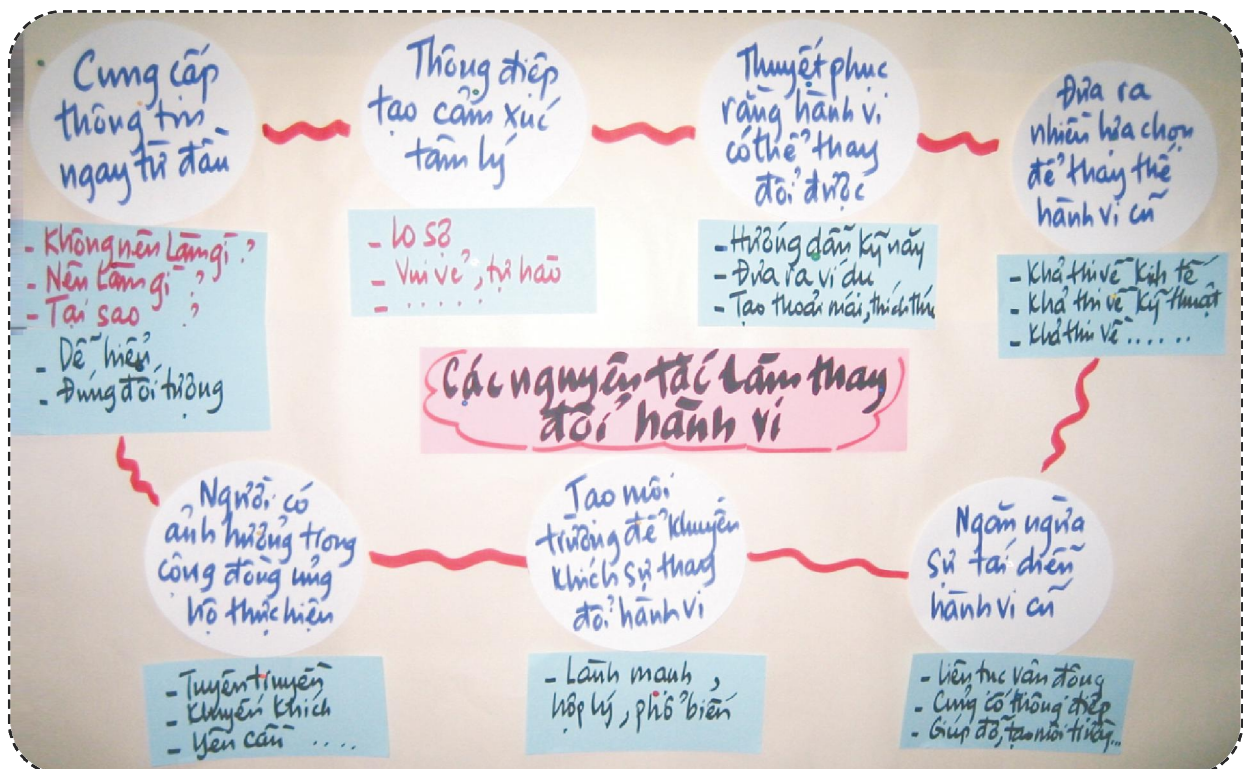 Cung cấp
thông tin
ngay từ đầu
- Không nên làm gì ?
- Nên làm gì ?
- Tại sao ?
- Dễ hiểu
- Đúng đối tượng
Thông điệp
tạo cảm xúc
tâm lý
- Lo sợ
- Vui vẻ, tự hào
- .....
Thuyết phục
rằng hành vi
có thể thay
đổi được
- Hướng dẫn kỹ năng
- Đưa ra ví dụ
- Tạo thoải mái, thích thú
Đưa ra
nhiều lựa chọn
để thay thế
hành vi cũ
- Khả thi về kinh tế
- Khả thi về kỹ thuật
- Khả thi về ......
Các nguyên tắc làm thay
đổi hành vi
Người có
ảnh hưởng trong
cộng đồng ủng
hộ thực hiện
- Tuyên truyền
- Khuyến khích
- Yêu cầu ....
Tạo môi
trường để khuyến
khích sự thay
đổi hành vi
- Lành mạnh,
hợp lý, phổ biến
Ngăn ngừa
sự tái diễn
hành vi cũ
- Liên tục vận động
- Củng cố thông điệp
- Giúp đỡ, tạo môi trường...